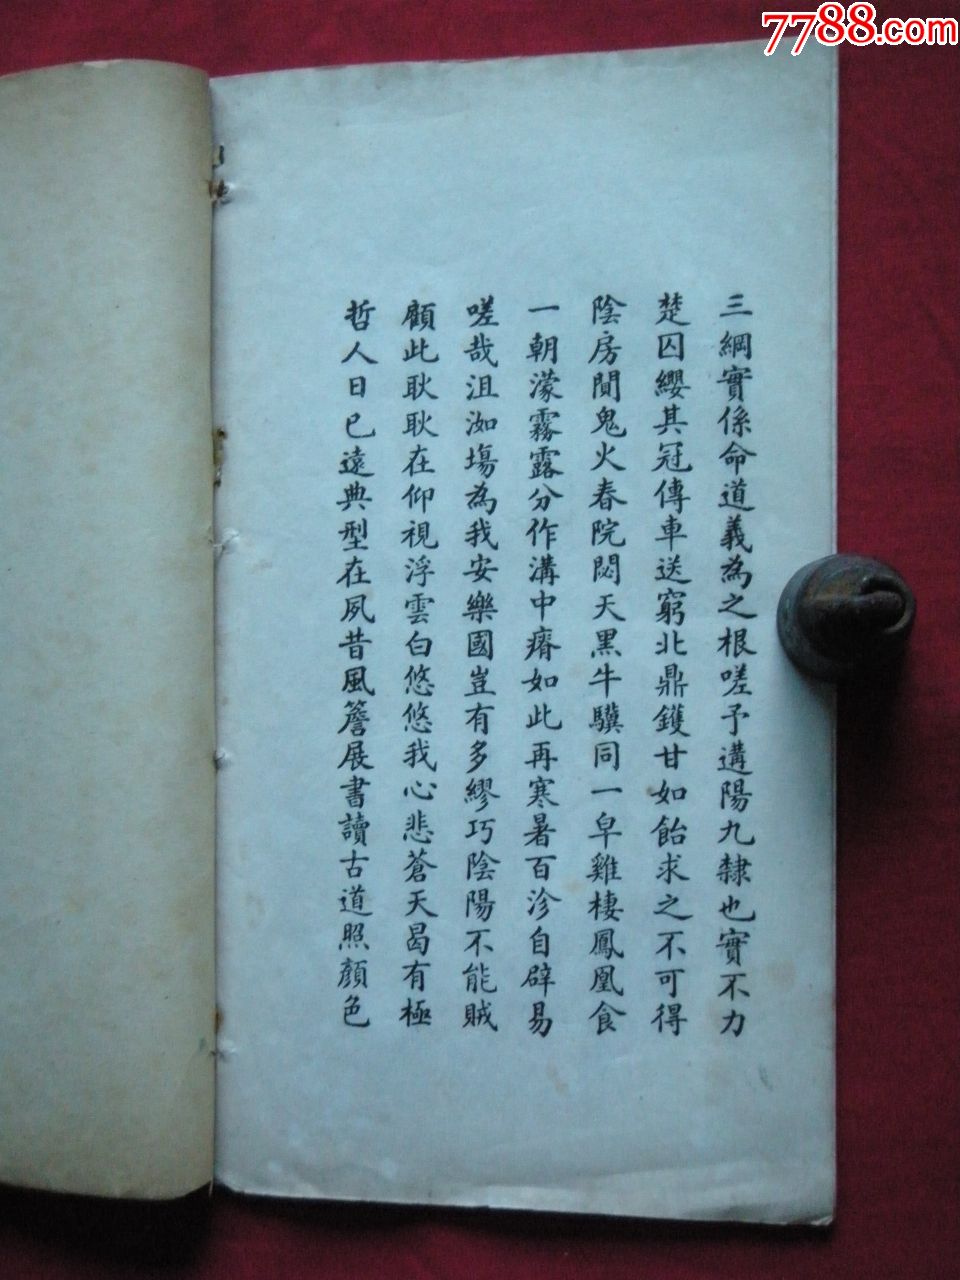 7788.com
三綱實係命道義為之根嗟予遘陽九隸也實不力
楚囚纓其冠傳車送窮北鼎鑊甘如飴求之不可得
陰房閴鬼火春院閟天黑牛驥同一皁雞棲鳳凰食
一朝濛霧露分作溝中瘠如此再寒暑百沴自辟易
嗟哉沮洳場為我安樂國豈有多繆巧陰陽不能賊
顧此耿耿在仰視浮雲白悠悠我心悲蒼天曷有極
哲人日已遠典型在夙昔風簷展書讀古道照顏色